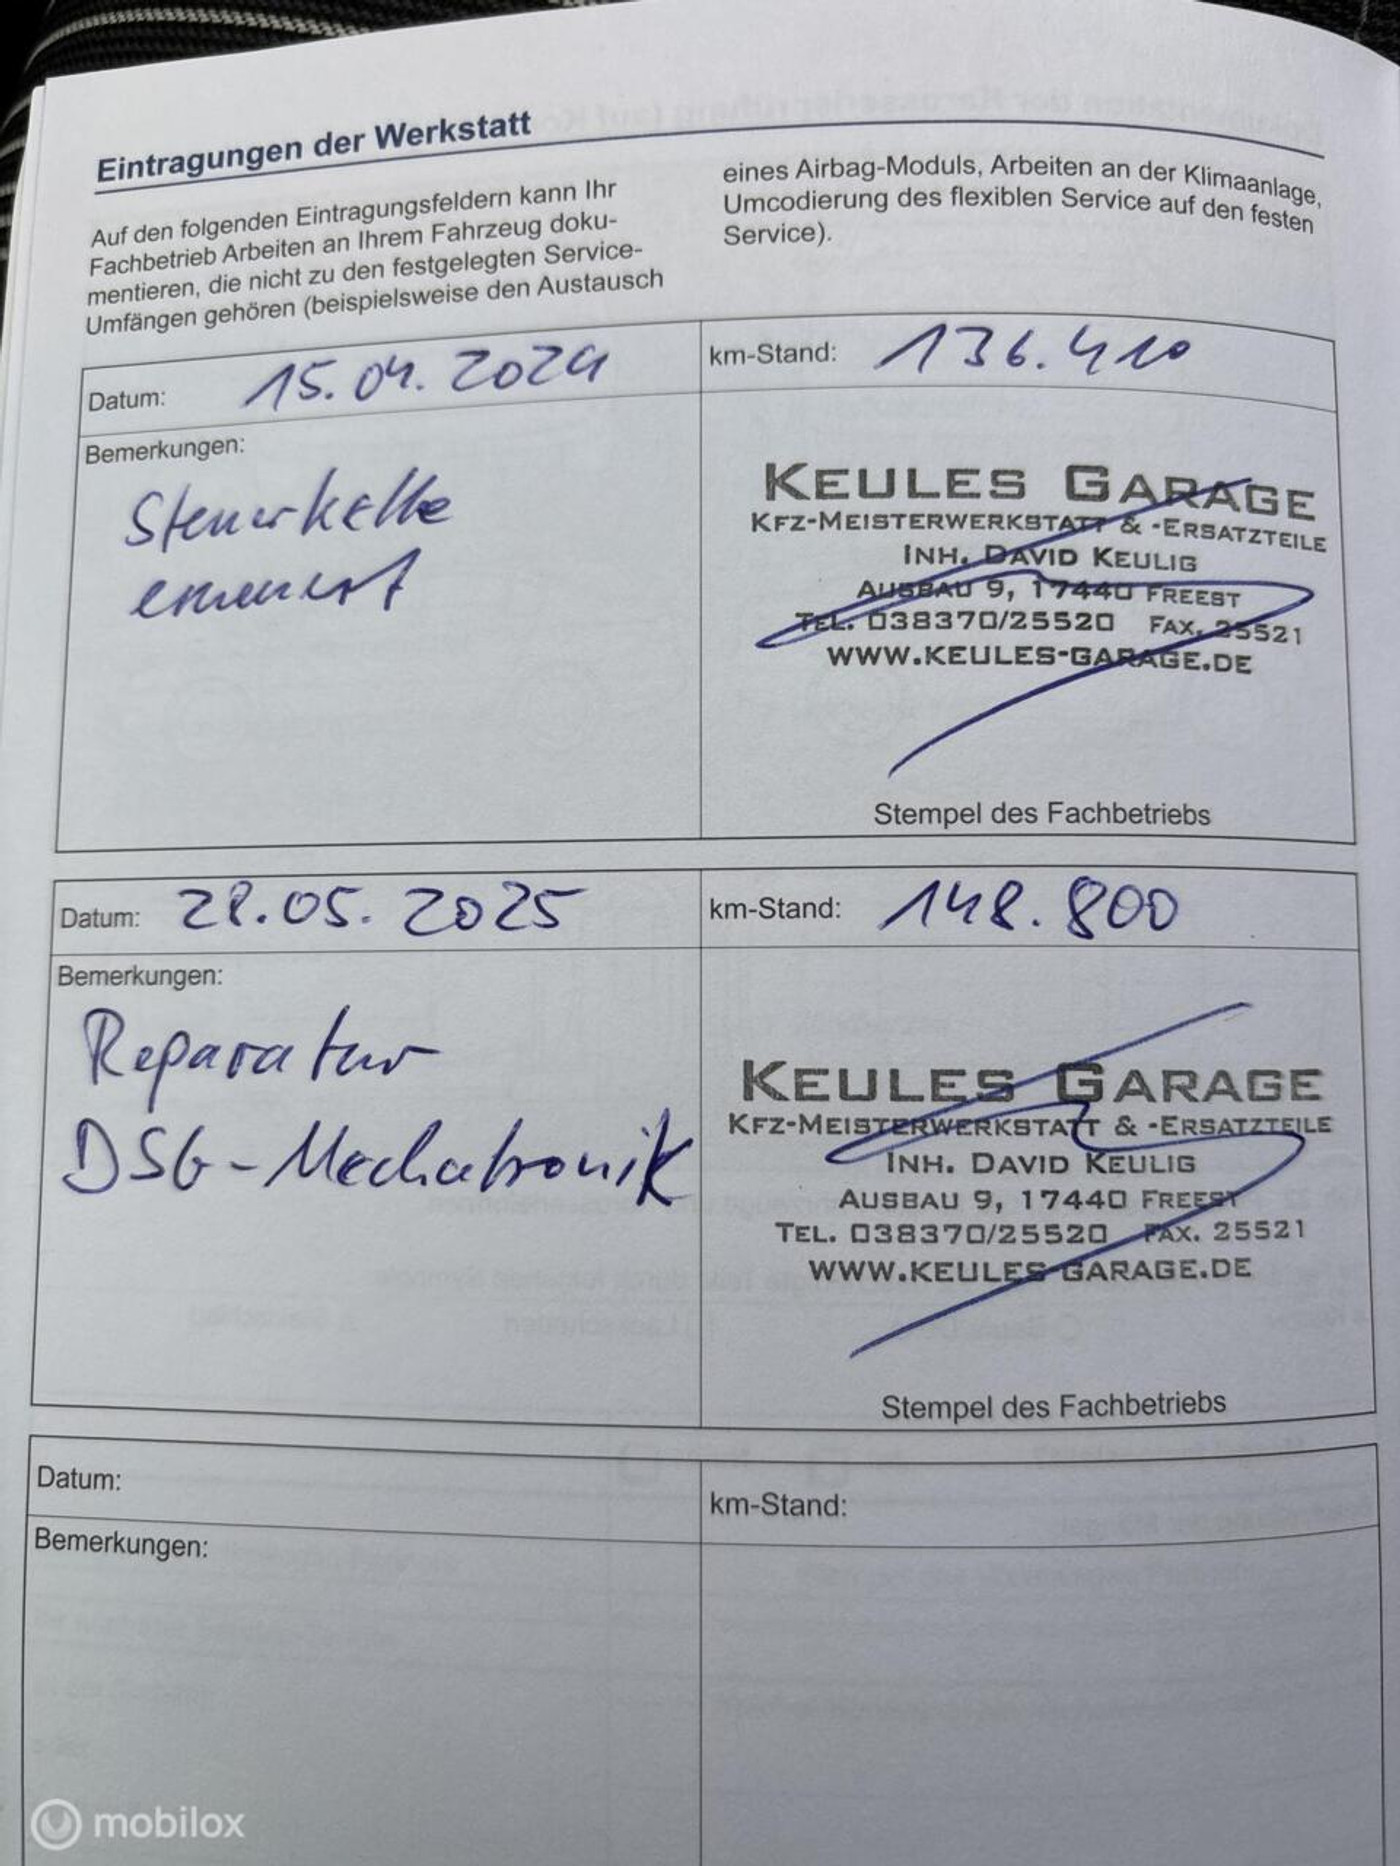 Eintragungen der Werkstatt
Auf den folgenden Eintragungsfeldern kann Ihr
Fachbetrieb Arbeiten an Ihrem Fahrzeug doku-
mentieren, die nicht zu den festgelegten Service-
Umfängen gehören (beispielsweise den Austausch
eines Airbag-Moduls, Arbeiten an der Klimaanlage,
Umcodierung des flexiblen Service auf den festen
Service).
Datum: 15.04.2024
km-Stand: 136.410
Bemerkungen:
Steuerkette
erneuert
KEULES GARAGE
KFZ-MEISTERWERKSTATT & -ERSATZTEILE
INH. DAVID KEULIG
AUSBAU 9, 17440 FREEST
TEL. 038370/25520 FAX. 25521
WWW.KEULES-GARAGE.DE
Stempel des Fachbetriebs
Datum: 28.05.2025
km-Stand: 148.800
Bemerkungen:
Reparatur
DSG-Mechatronik
KEULES GARAGE
KFZ-MEISTERWERKSTATT & -ERSATZTEILE
INH. DAVID KEULIG
AUSBAU 9, 17440 FREEST
TEL. 038370/25520 FAX. 25521
WWW.KEULES-GARAGE.DE
Stempel des Fachbetriebs
Datum:
km-Stand:
Bemerkungen:
mobilox